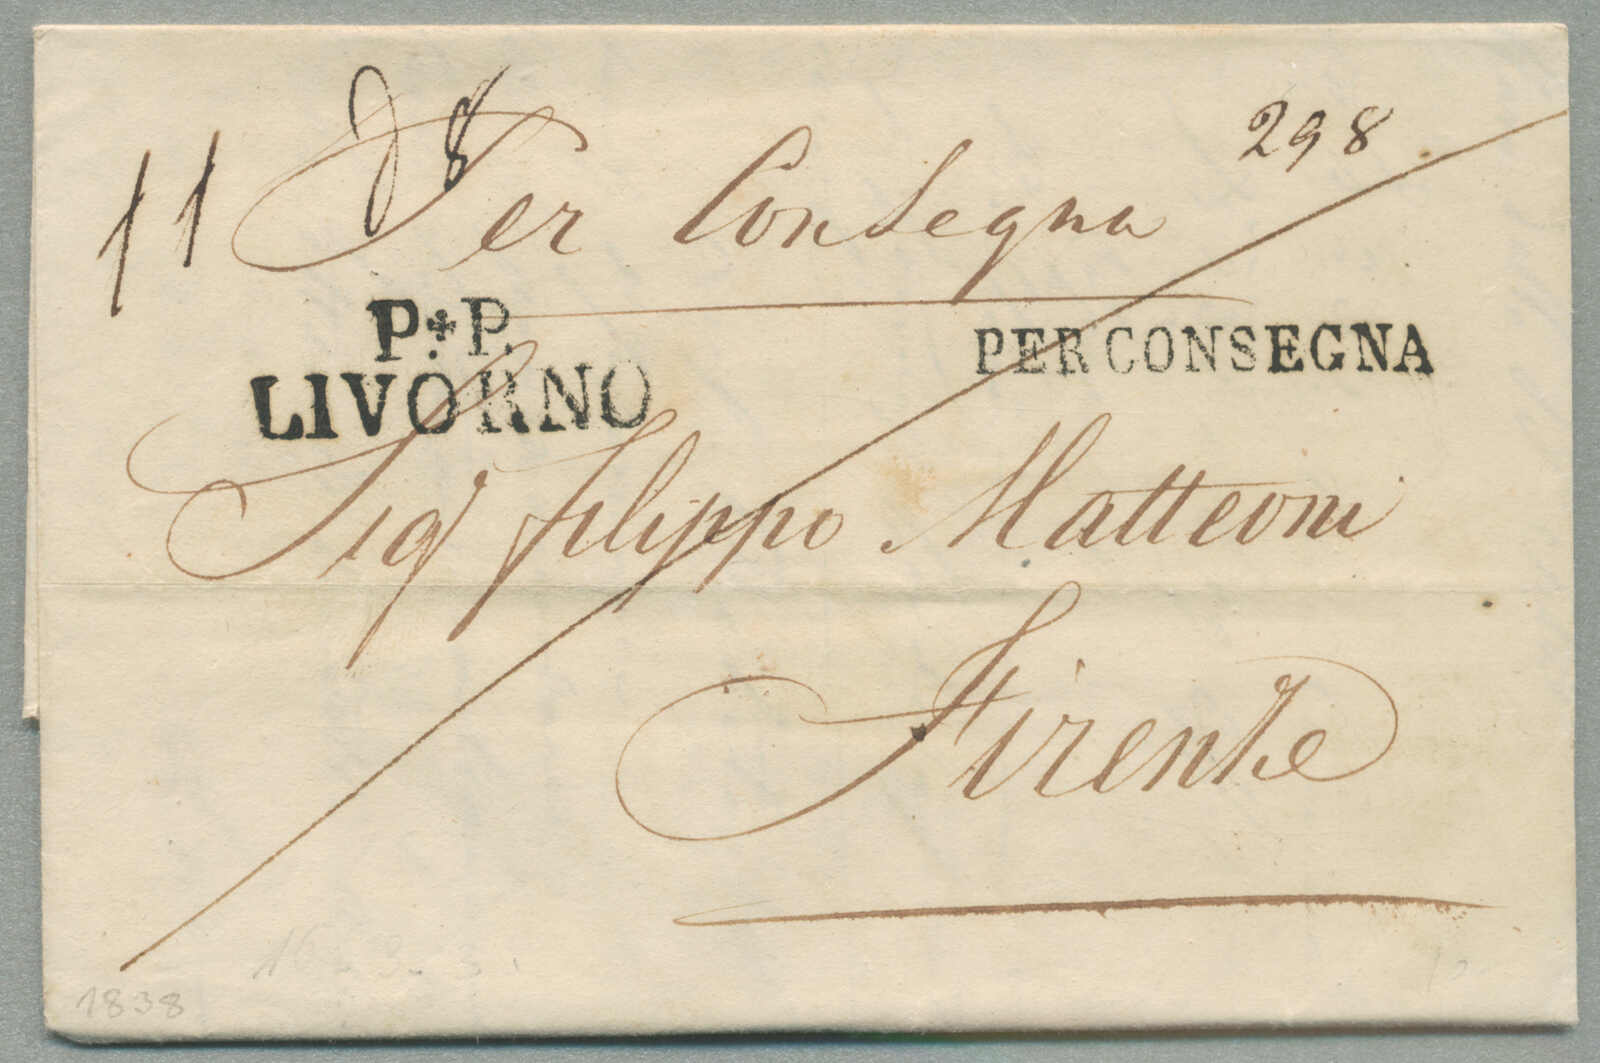 11
298
Per Consegna
P.P.
LIVORNO
PER CONSEGNA
Sigr Filippo Matteoni
Firenze
16 . 3 . 3 .
1838